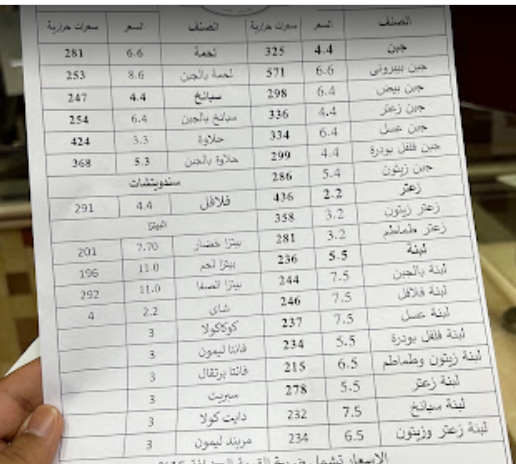 الصنف السعر سعرات حرارية الصنف السعر سعرات حرارية
جبن 4.4 325 لحمة 6.6 281
جبن بيبروني 6.6 571 لحمة بالجبن 8.6 253
جبن بيض 6.4 298 سبانخ 4.4 247
جبن زعتر 4.4 336 سبانخ بالجبن 6.4 254
جبن عسل 6.4 334 حلاوة 3.3 424
جبن فلفل بودرة 4.4 299 حلاوة بالجبن 5.3 368
جبن زيتون 5.4 286 سندويتشات
زعتر 2.2 436 فلافل 4.4 291
زعتر زيتون 3.2 358 البيتزا
زعتر طماطم 3.2 281 بيتزا خضار 7.70 201
لبنة 5.5 236 بيتزا لحم 11.0 196
لبنة بالجبن 7.5 244 بيتزا الصفا 11.0 292
لبنة فلافل 7.5 246 شاي 2.2 4
لبنة عسل 7.5 237 كوكاكولا 3
لبنة فلفل بودرة 5.5 234 فانتا ليمون 3
لبنة زيتون وطماطم 6.5 215 فانتا برتقال 3
لبنة زعتر 5.5 278 سبريت 3
لبنة سبانخ 7.5 232 دايت كولا 3
لبنة زعتر وزيتون 6.5 234 مريند ليمون 3
الاسعار تشمل ضريبة القيمة المضافة